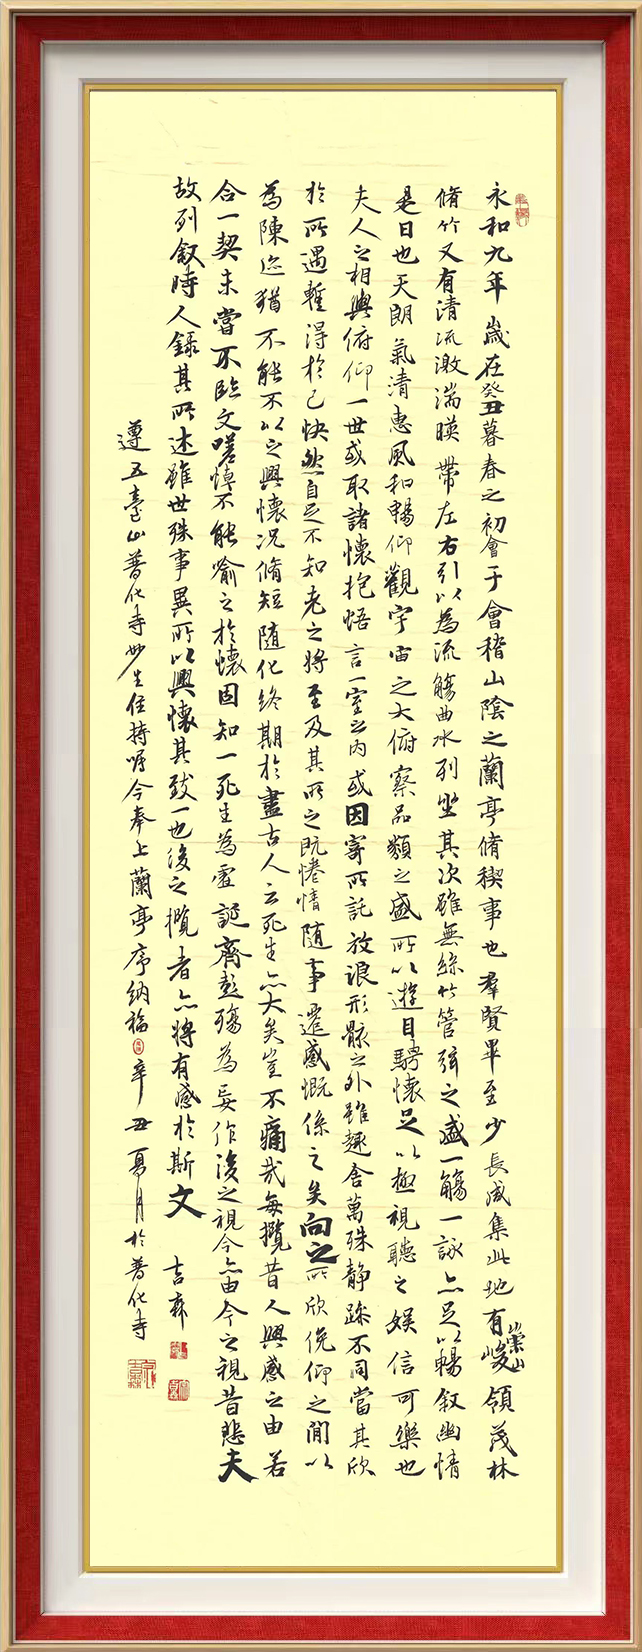 永和九年歲在癸丑暮春之初會于會稽山陰之蘭亭脩稧事也羣賢畢至少長咸集此地有崇山峻領茂林
脩竹又有清流激湍暎帶左右引以為流觴曲水列坐其次雖無絲竹管弦之盛一觴一詠亦足以暢敘幽情
是日也天朗氣清惠風和暢仰觀宇宙之大俯察品類之盛所以遊目騁懷足以極視聽之娛信可樂也
夫人之相與俯仰一世或取諸懷抱悟言一室之內或因寄所託放浪形骸之外雖趣舍萬殊靜躁不同當其欣
於所遇暫得於己快然自足不知老之將至及其所之既惓情隨事遷感慨係之矣向之所欣俛仰之間以
為陳迹猶不能不以之興懷況脩短隨化終期於盡古人云死生亦大矣豈不痛哉每攬昔人興感之由若
合一契未嘗不臨文嗟悼不能喻之於懷固知一死生為虛誕齊彭殤為妄作後之視今亦由今之視昔悲夫
故列敘時人錄其所述雖世殊事異所以興懷其致一也後之攬者亦將有感於斯文 吉森
遵五臺山普化寺妙生住持囑今奉上蘭亭序納福 辛丑夏月於普化寺